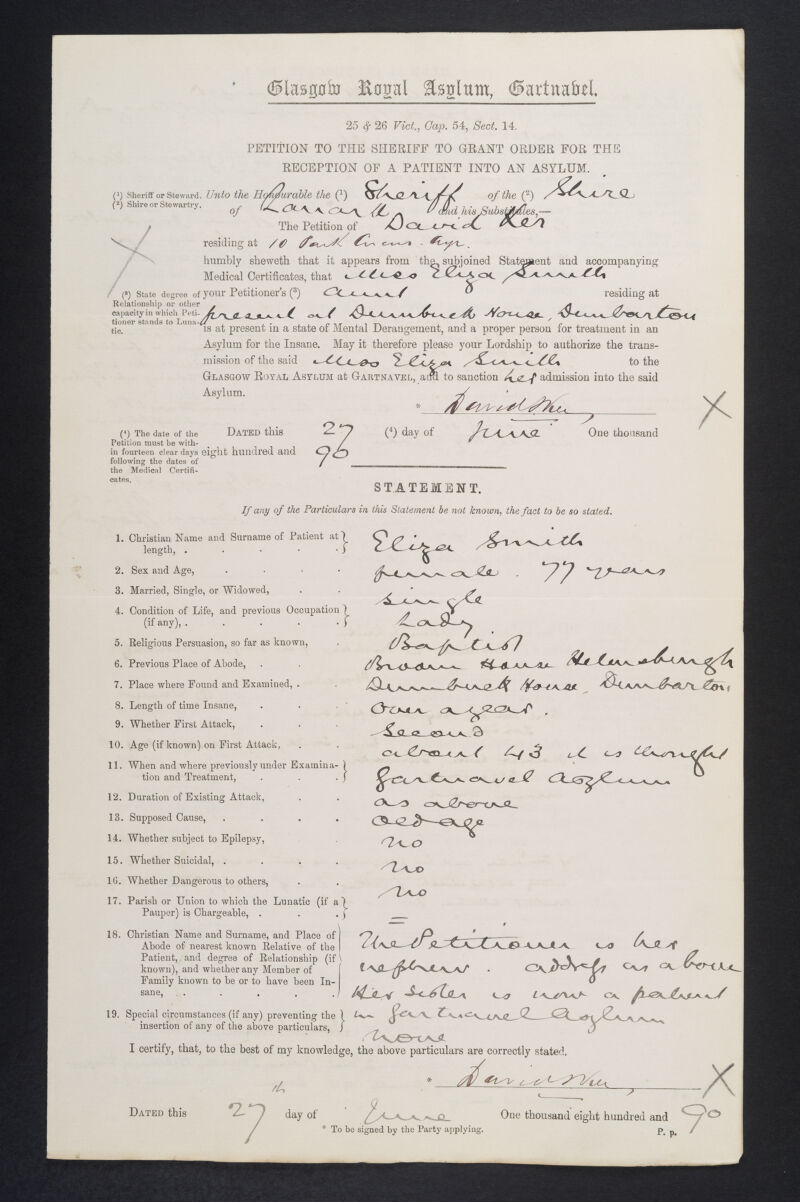 Glasgow Royal Asylum, Gartnavel.
25 & 26 Vict., Cap. 54, Sect. 14.
PETITION TO THE SHERIFF TO GRANT ORDER FOR THE
RECEPTION OF A PATIENT INTO AN ASYLUM.
(1) Sheriff or Steward.
(2) Shire or Stewartry.
Unto the Honourable the (1) Sheriff of the (2) Shire
of Lanark and his Substitutes,—
The Petition of David Ker
residing at 10 Park Circus. Ayr.
humbly sheweth that it appears from the subjoined Statement and accompanying
Medical Certificates, that Miss Eliza Smith
(3) State degree of
Relationship or other
capacity in which Peti-
tioner stands to Luna-
tic.
your Petitioner's (3) aunt residing at
present at Dumbuck House, Dumbarton
is at present in a state of Mental Derangement, and a proper person for treatment in an
Asylum for the Insane. May it therefore please your Lordship to authorize the trans-
mission of the said Miss Eliza Smith to the
GLASGOW ROYAL ASYLUM at GARTNAVEL, and to sanction her admission into the said
Asylum.
* David Ker
X
(4) The date of the
Petition must be with-
in fourteen clear days
following the dates of
the Medical Certifi-
cates.
DATED this 27 (4) day of June One thousand
eight hundred and 90
STATEMENT.
If any of the Particulars in this Statement be not known, the fact to be so stated.
1. Christian Name and Surname of Patient at
length, . Eliza Smith
2. Sex and Age, female. 77 years
3. Married, Single, or Widowed, single
4. Condition of Life, and previous Occupation
(if any), . Lady
5. Religious Persuasion, so far as known, Baptist
6. Previous Place of Abode, Broom House Helensburgh
7. Place where Found and Examined, Dumbuck House, Dumbarton.
8. Length of time Insane, over a year.
9. Whether First Attack, second
10. Age (if known) on First Attack, about 43 it is thought
11. When and where previously under Examina-
tion and Treatment, Gartnavel Asylum
12. Duration of Existing Attack, as above
13. Supposed Cause, old age
14. Whether subject to Epilepsy, no
15. Whether Suicidal, no
16. Whether Dangerous to others, no
17. Parish or Union to which the Lunatic (if a
Pauper) is Chargeable, =
18. Christian Name and Surname, and Place of
Abode of nearest known Relative of the
Patient, and degree of Relationship (if
known), and whether any Member of
Family known to be or to have been In-
sane,
The Petitioner is her
nephew. address as above
Her sister is now a patient
in Gartnavel Asylum
19. Special circumstances (if any) preventing the
insertion of any of the above particulars, none
I certify, that, to the best of my knowledge, the above particulars are correctly stated.
* David Ker
X
DATED this 27th day of June One thousand eight hundred and 90
* To be signed by the Party applying.
P. p.